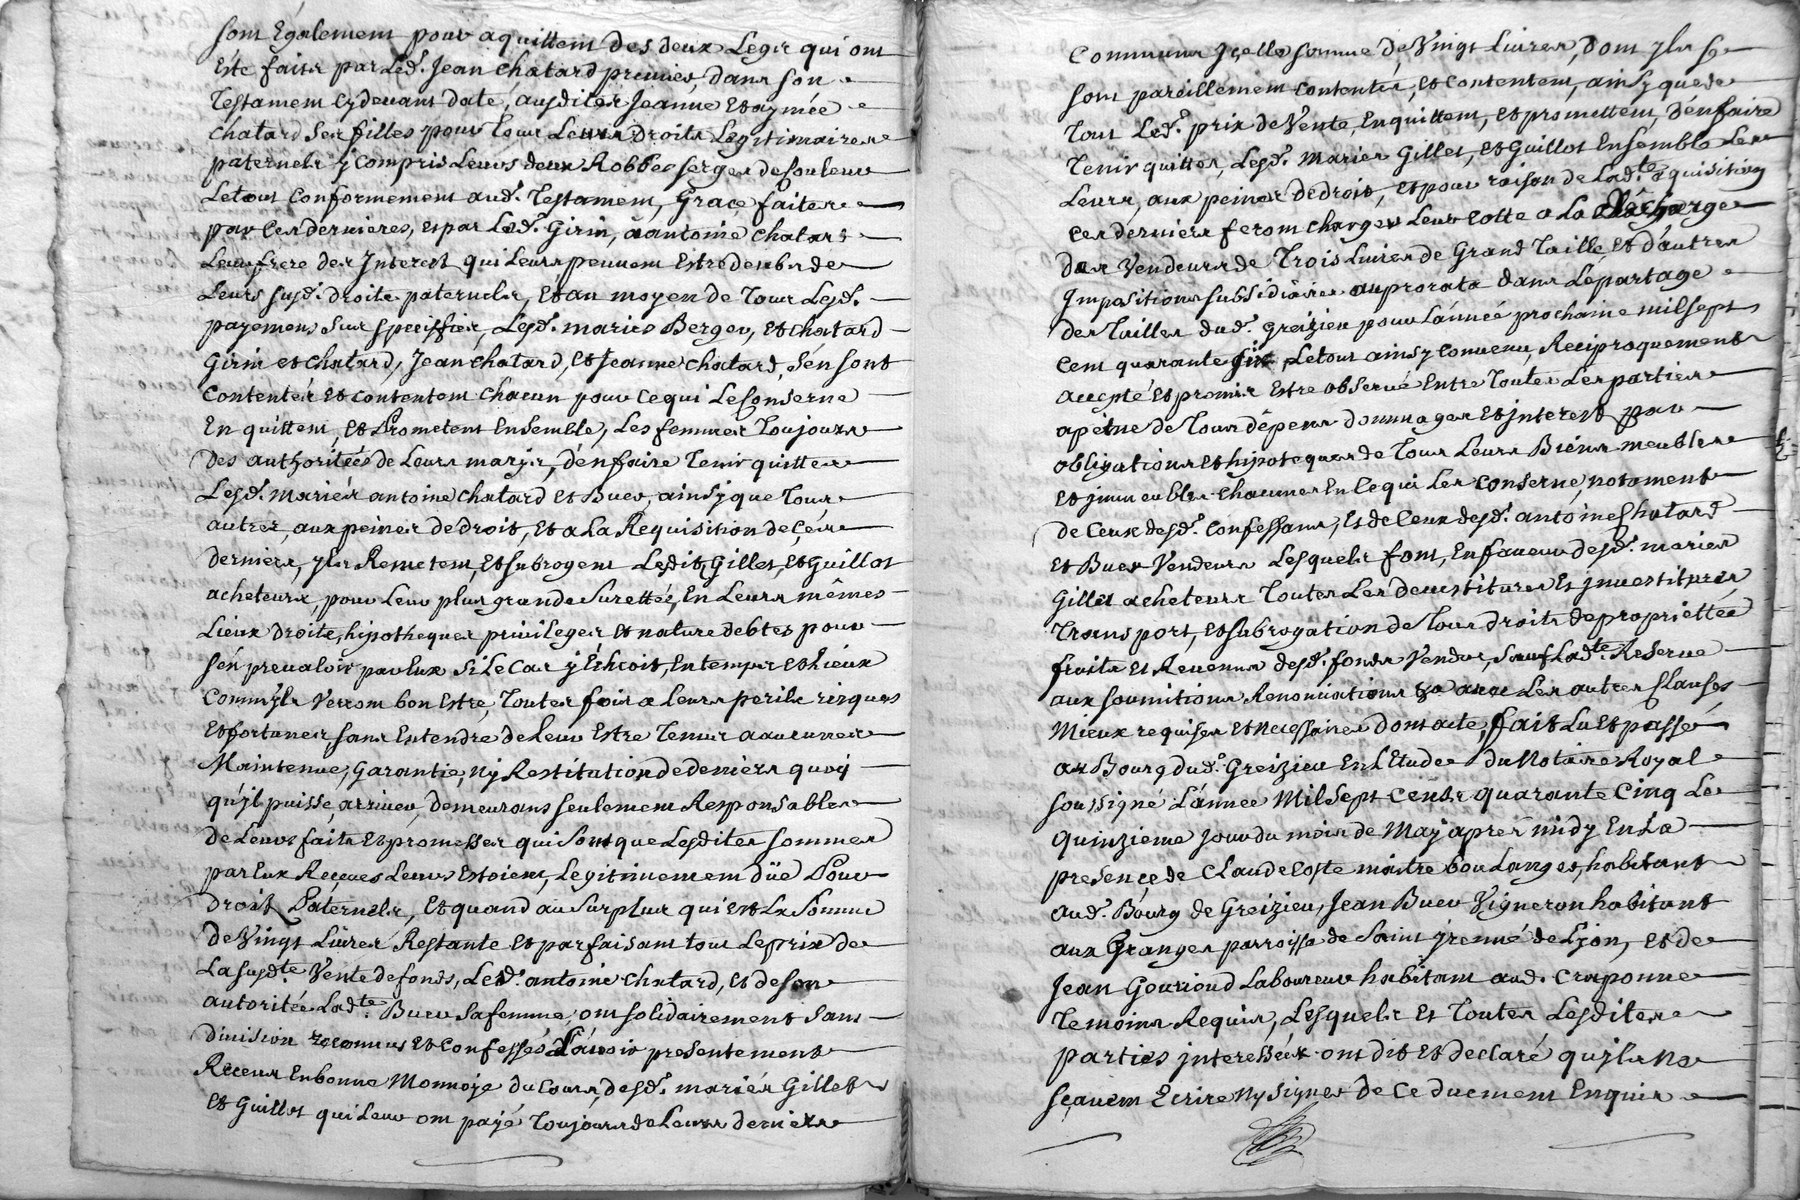 sont également pour aquittem des deux Legs qui ont
Esté faits par Led. Jean Chatard premier, dans son
Testament cydevant daté, ausdites Jeanne et aymée
Chatard Ses filles pour Tous Leurs Droits Legitimaires
paternels y compris Leurs deux Robbes serges de Couleur
Letout Conformement aud. Testament, Grace faite
par Ces dernieres, et par Led. Girin, a antoine Chatard
Leur frere des Interest qui Leurs peuvent Estre deubs de
Leurs susd. droits paternels, Et au moyen de Tous Lesd.
payemens sus speciffiés, Lesd. mariés Berger, et Chatard
Girin et Chatard, Jean Chatard, et Jeanne Chatard, s'en sont
Contentés et contentent Chacun pour Cequi Leconserne
En quittent, et Prometent Ensemble, Les femmes Toujours
des authoritées de Leurs marys, d'en faire Tenir quittes
Lesd. mariés antoine Chatard et Buer, ainsy que Tous
autres, aux peines de droit, et a La Requisition de Ces
derniers, yls Remetent, et subrogent Lesdits Gillet, et Guillot
acheteurs, pour Leur plus grande Surettée, En Leurs mêmes
Lieux droits, hipotheques privileges et nature debtes pour
s'en prevaloir par Eux Si Le Cas y Echeoit, En temps et Lieux
Comm'yls verront bon Estre, Toutes fois a Leurs perils risques
et fortunes, sans Entendre de Leur Estre Tenus a aucunes
Maintenue, Garantie, ny Restitution de deniers quoy
qu'yl puisse, arriver, demeurans seulement Responsables
de Leurs faits et promesses qui sont que Lesdites sommes
par Eux Reçeues Leurs Estoient, Legitimement düe Pour
droits Paternels, Et quand au Surplus qui Est La Somme
de Vingt Livres Restante et parfaisant tout Le prix de
La susdte. Vente de fonds, Led. antoine Chatard, et de son
autorité Ladte. Buer sa femme, ont solidairement sans
division reconnus et confessés d'avoir presentement
Reçeus En bonne Monnoye du Cours, desd. mariés Gillet
et Guillot qui Leur ont payé Toujours de Leurs deniers
Communs yçelle somme de Vingt Livres, dont yls se
sont pareillement contentés, et contentent, ainsy que de
Tout Led. prix de Vente, En quittent, et promettent, d'en faire
Tenir quittes, Lesd. Mariés Gillet, et Guillot Ensemble Les
Leurs, aux peines de droit, et pour raison de Ladte. aquisition
ces derniers feront charger Leur cotte a La Décharge
des Vendeurs de Trois Livres de Grand Taille, et d'autres
Impositions subsidiaires au prorata dans Le partage
des Tailles dud. Greizieu pour L'année prochaine mil sept
cent quarante six, Le tout ainsy convenu, Reciproquement
accepté et promis Estre observé Entre Toutes Les parties
a peine de Tous dépens dommages et interest par
obligations et hipoteques de Tous Leurs Biens meubles
et immeubles Chacuns En ce qui Les Conserne, notament
de Ceux desd. Confessans, et de Ceux desd. antoine Chatard
et Buer Vendeurs Lesquels font, En faveur desd. mariés
Gillet acheteurs Toutes Les devestitures et investitures
Transport, et subrogation de Tous droits de propriettée
fruits et Revenus desd. fonds Vendus, Sauf Ladte. Reserve
aux soumitions Renonciations & avec Les autres Clauses
Mieux requises et necessaires dont acte, fait Lu et passé
au Bourg dud. Greizieu En L'Etude du Notaire Royal
soussigné L'année Mil Sept Cents quarante Cinq Le
quinzieme jour du mois de May aprés midy En La
presençe de Claude Coste maître boulanger, habitant
aud. Bourg de Greizieu, Jean Buer Vigneron habitant
aux Granges parroisse de Saint yrenné de Lyon, et de
Jean Gouriond Laboureur habitant aud. Craponne
Temoins Requis, Lesquels et Toutes Lesdites
parties interessées ont dit et declaré qu'yls ne
sçavent Ecrire ny signer de Ce duement Enquis